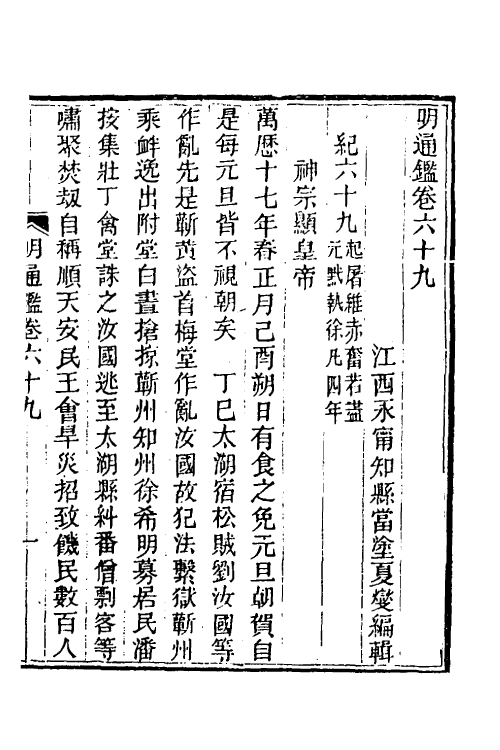 明通鑑卷六十九
江西永甯知縣當塗夏燮編輯
紀六十九起屠維赤奮若盡
元黓執徐凡四年
神宗顯皇帝
萬歷十七年春正月己酉朔日有食之免元旦朝賀自
是每元旦皆不視朝矣　丁巳太湖宿松賊劉汝國等
作亂先是蘄黃盜首梅堂作亂汝國故犯法繫獄蘄州
乘衅逸出附堂白晝搶掠蘄州知州徐希明募居民潘
按集壯丁禽堂誅之汝國逃至太湖縣糾番僧剽客等
嘯聚焚刼自稱順天安民王會旱災招致饑民數百人
明通鑑卷六十九
一